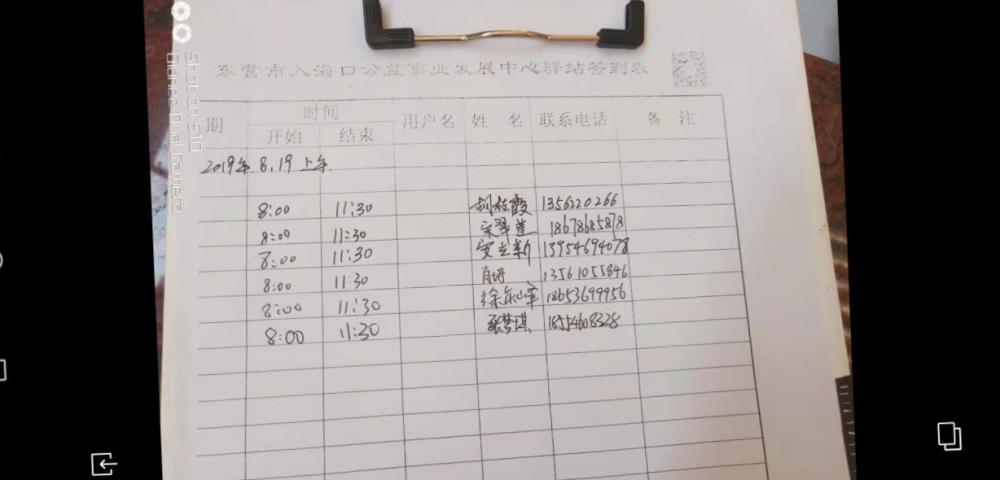 东营市入海口公益事业发展中心驿站签到表
期 时间 用户名 姓 名 联系电话 备 注
开始 结束
2019年8.19上午
8:00 11:30 霞 1356220266
8:00 11:30 宋翠莲 18678685878
8:00 11:30 安立新 13954694078
8:00 11:30 肖妍 13561055846
8:00 11:30 徐 峰 18653699956
8:00 11:30 张梦琪 18554608328
Shot on S10
Gionee Dual Camera